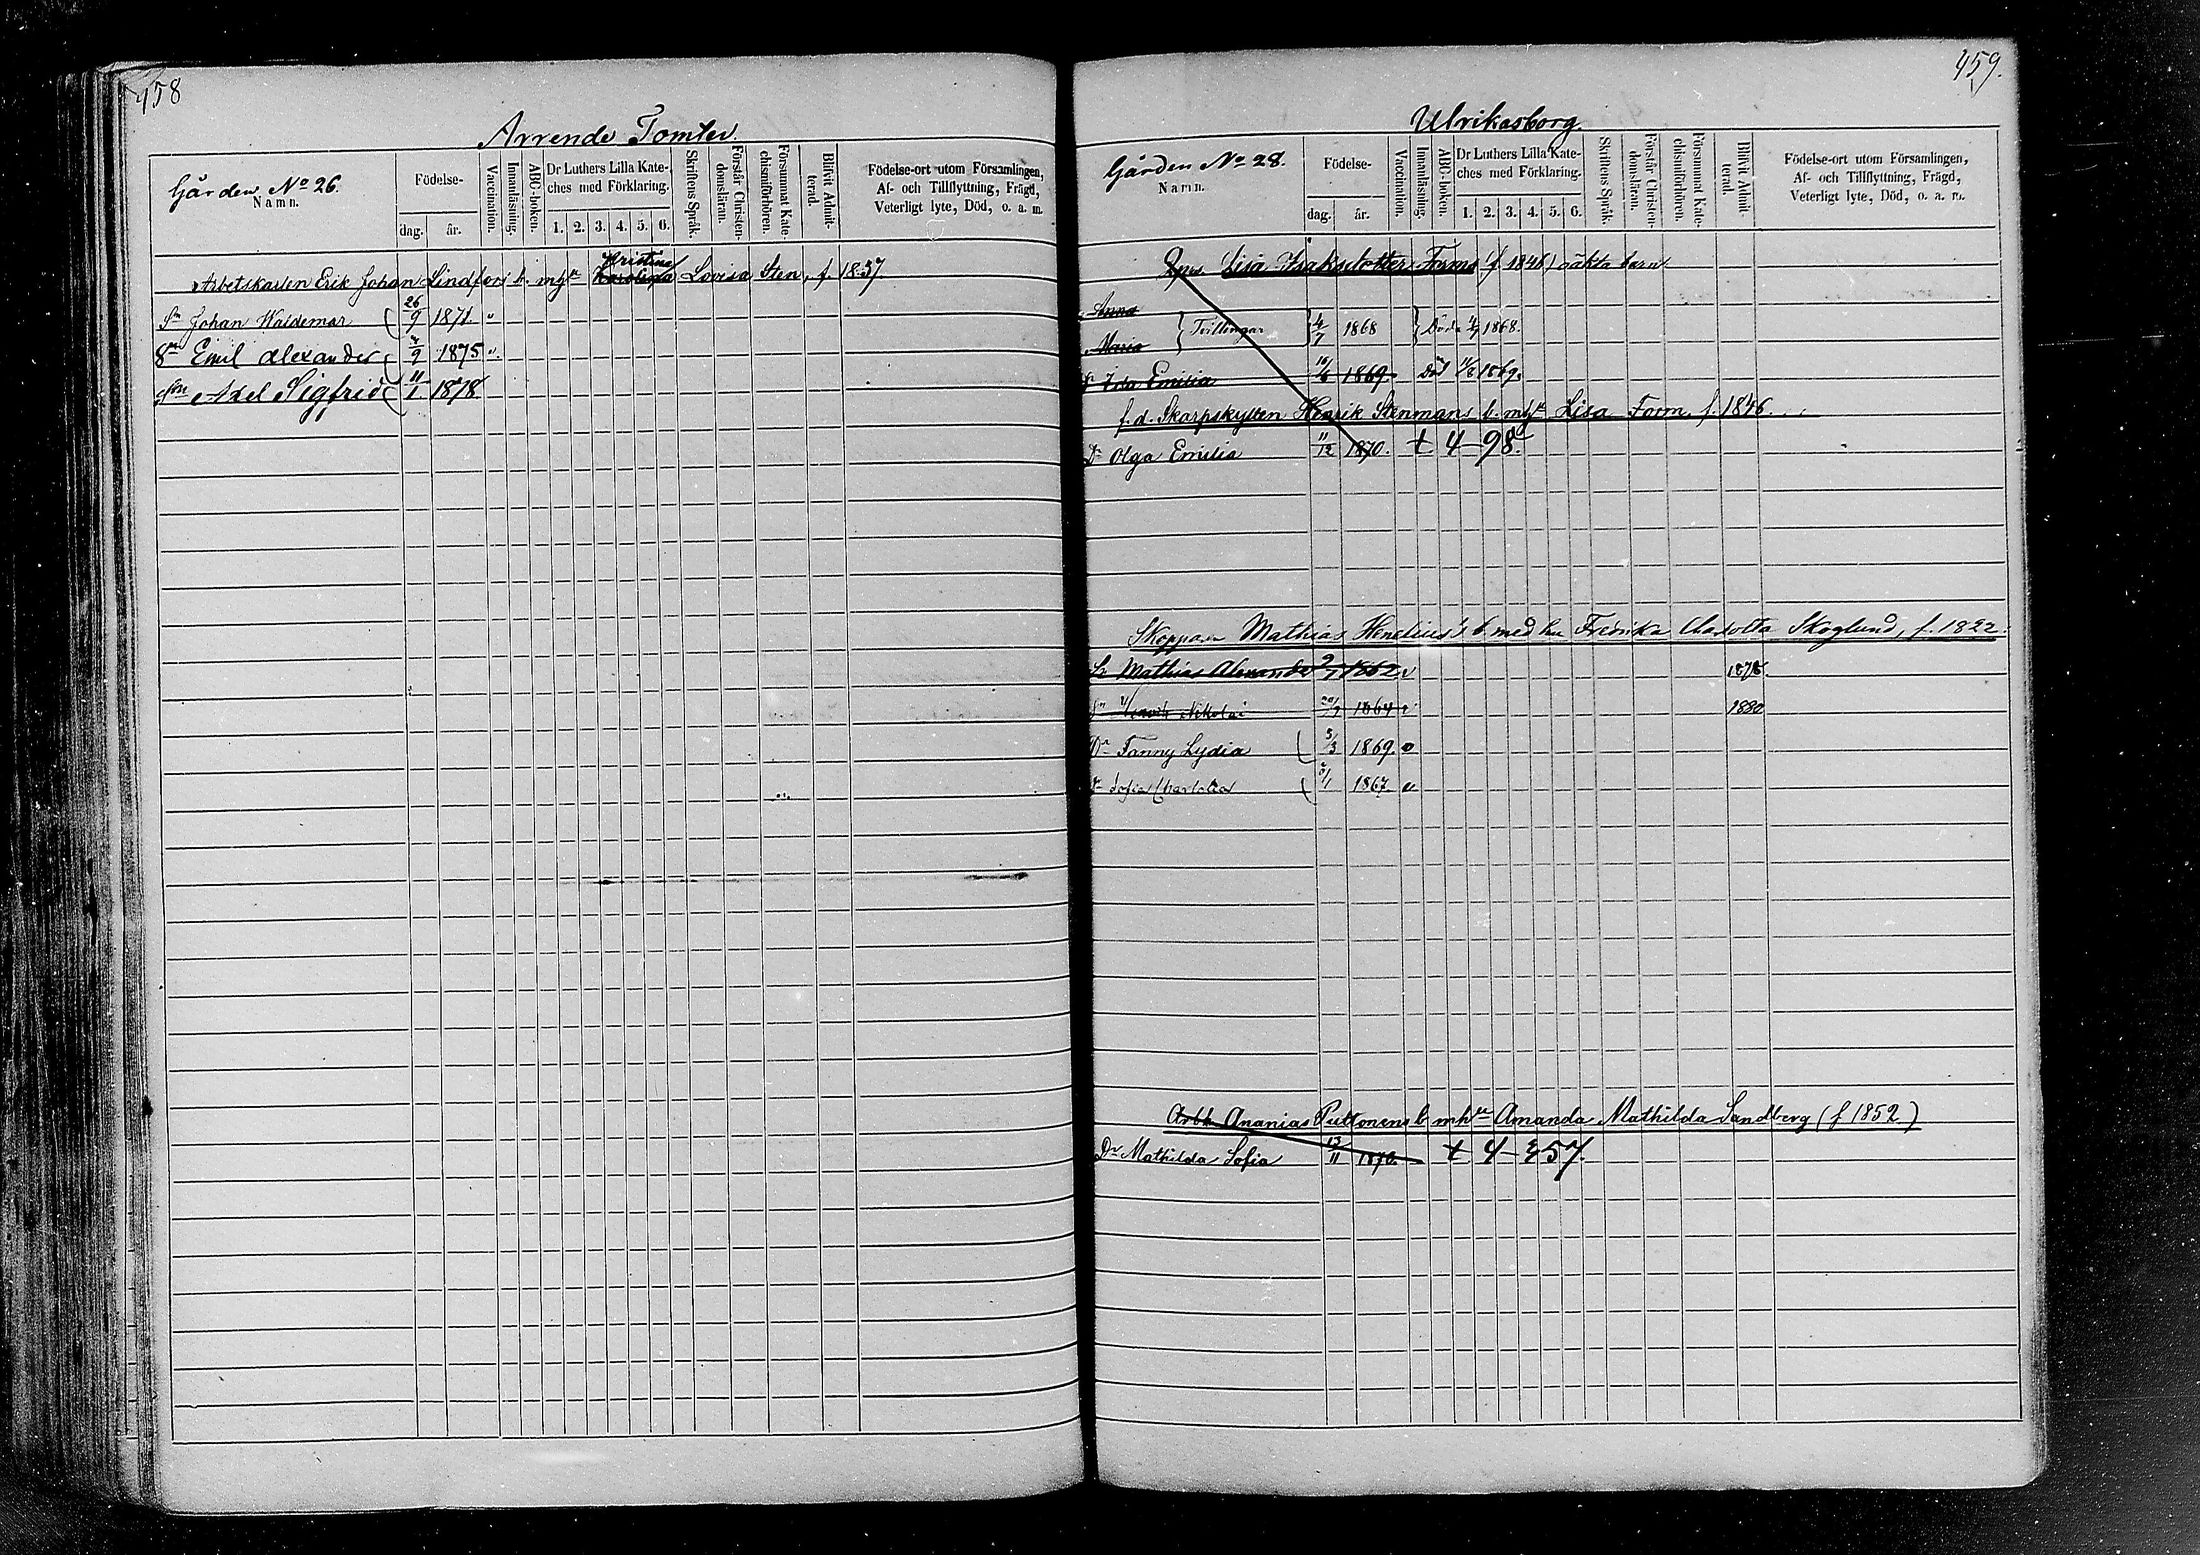 458
Arrende Tomter
Gården No 26.
Namn.
Födelse-
dag.
år.
Vaccination.
Innanläsning.
ABC-boken.
Dr Luthers Lilla Kate-
ches med Förklaring.
1. 2. 3. 4. 5. 6.
Skriftens Språk.
Förstår Christen-
domsläran.
Försummat Kate-
chismiförhören.
Blifvit Admit-
terad.
Födelse-ort utom Församlingen,
Af- och Tillflyttning, Frägd,
Veterligt lyte, Död, o. a. m.
Kristina
Arbetskarlen Erik Johan Lindfors b. mhu Karolina Lovisa Sten, f. 1837
Sn Johan Waldemar 26/9 1871. "
Sn Emil Alexander 2/9 1875 "
Son Axel Sigfrid 11/1 1878
459.
Ulrikasborg.
Gården No 28.
Namn.
Födelse-
dag.
år.
Vaccination.
Innanläsning.
ABC-boken.
Dr Luthers Lilla Kate-
ches med Förklaring.
1. 2. 3. 4. 5. 6.
Skriftens Språk.
Förstår Christen-
domsläran.
Försummat Kate-
chismiförhören.
Blifvit Admit-
terad.
Födelse-ort utom Församlingen,
Af- och Tillflyttning, Frägd,
Veterligt lyte, Död, o. a. m.
Lisa Isaksdotter Forms (f. 1846) oäkta barn
Anna
Tvillingar 4/7 1868 Döda 4/7 1868.
Maria
Ida Emilia 10/6 1869. Död 11/8 1869.
f. d. Skarpskytten Henrik Stenmans b. mhu Lisa Form, f. 1846.
Dr Olga Emilia 11/12 1870. t 4-98.
Skeppar Mathias Henelius's b. med hu Fredrika Charlotta Skoglund, f. 1822.
Sn Mathias Alexander 2/7 1862 v 1878.
Sn Henrik Nikolai 1864 v 1880
Dr Fanny Lydia 5/3 1869. v
Dr Sofia Charlotta 1867 v
Arbk Ananias Puttonens b mhu Amanda Mathilda Sandberg (f 1852)
Dr Mathilda Sofia 13/11 1870. t 4-357.